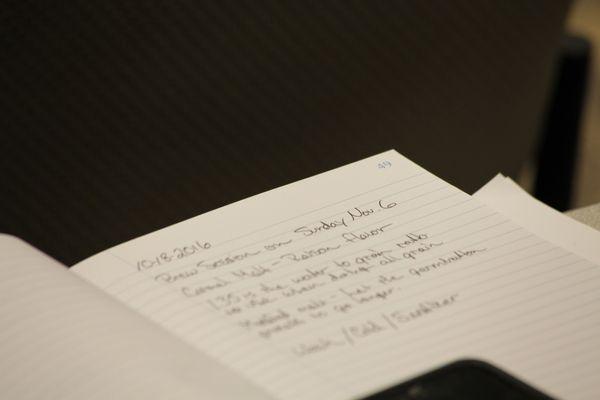 49
10-18-2016
Brew Session on Sunday Nov. 6
Caramel Malt - Raison flavor
1.35 is the water to grain ratio
to use when doing all grain
Malted malt - let the germination
process to go longer.
Wash / Cold / Sanitizer